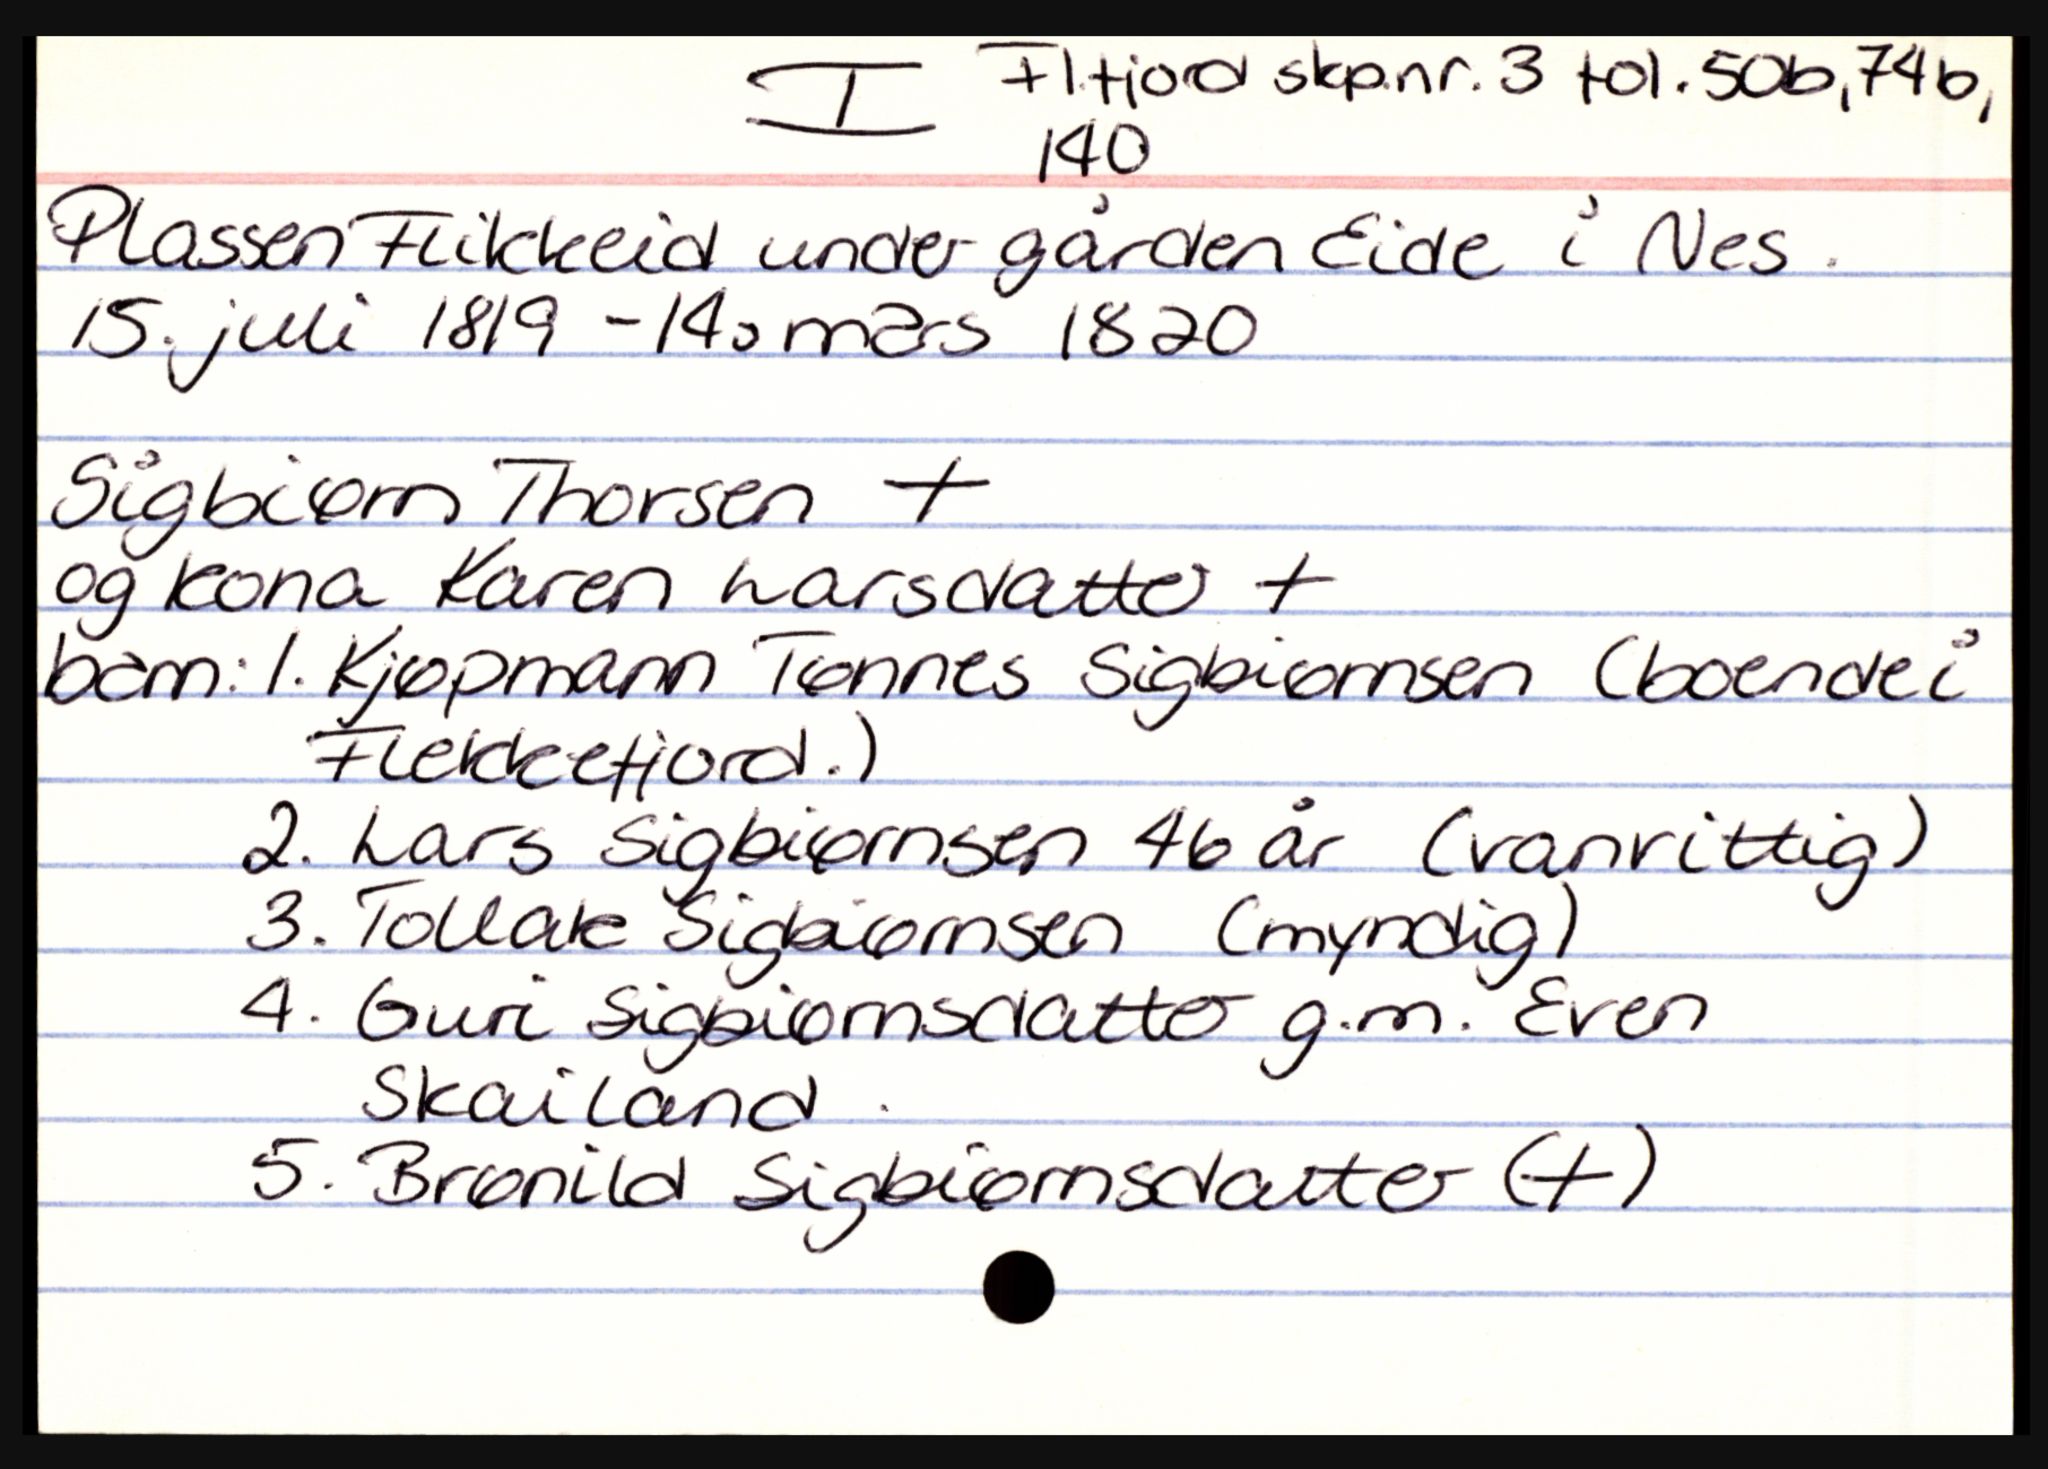 I Fl.fjord skp.nr. 3 fol. 50b, 74b,
140
Plassen Flikkeid under gården Eide i Nes.
15. juli 1819 - 14. mars 1820
Sigbiørn Thorsen +
og kona Karen Larsdatter +
barn: 1. Kjøpmann Tønnes Sigbiørnsen (boende i
Flekkefjord.)
2. Lars Sigbiørnsen 46 år (vanvittig)
3. Tollak Sigbiørnsen (myndig)
4. Guri Sigbiørnsdatter g.m. Even
Skailand.
5. Brønild Sigbiørnsdatter (+)